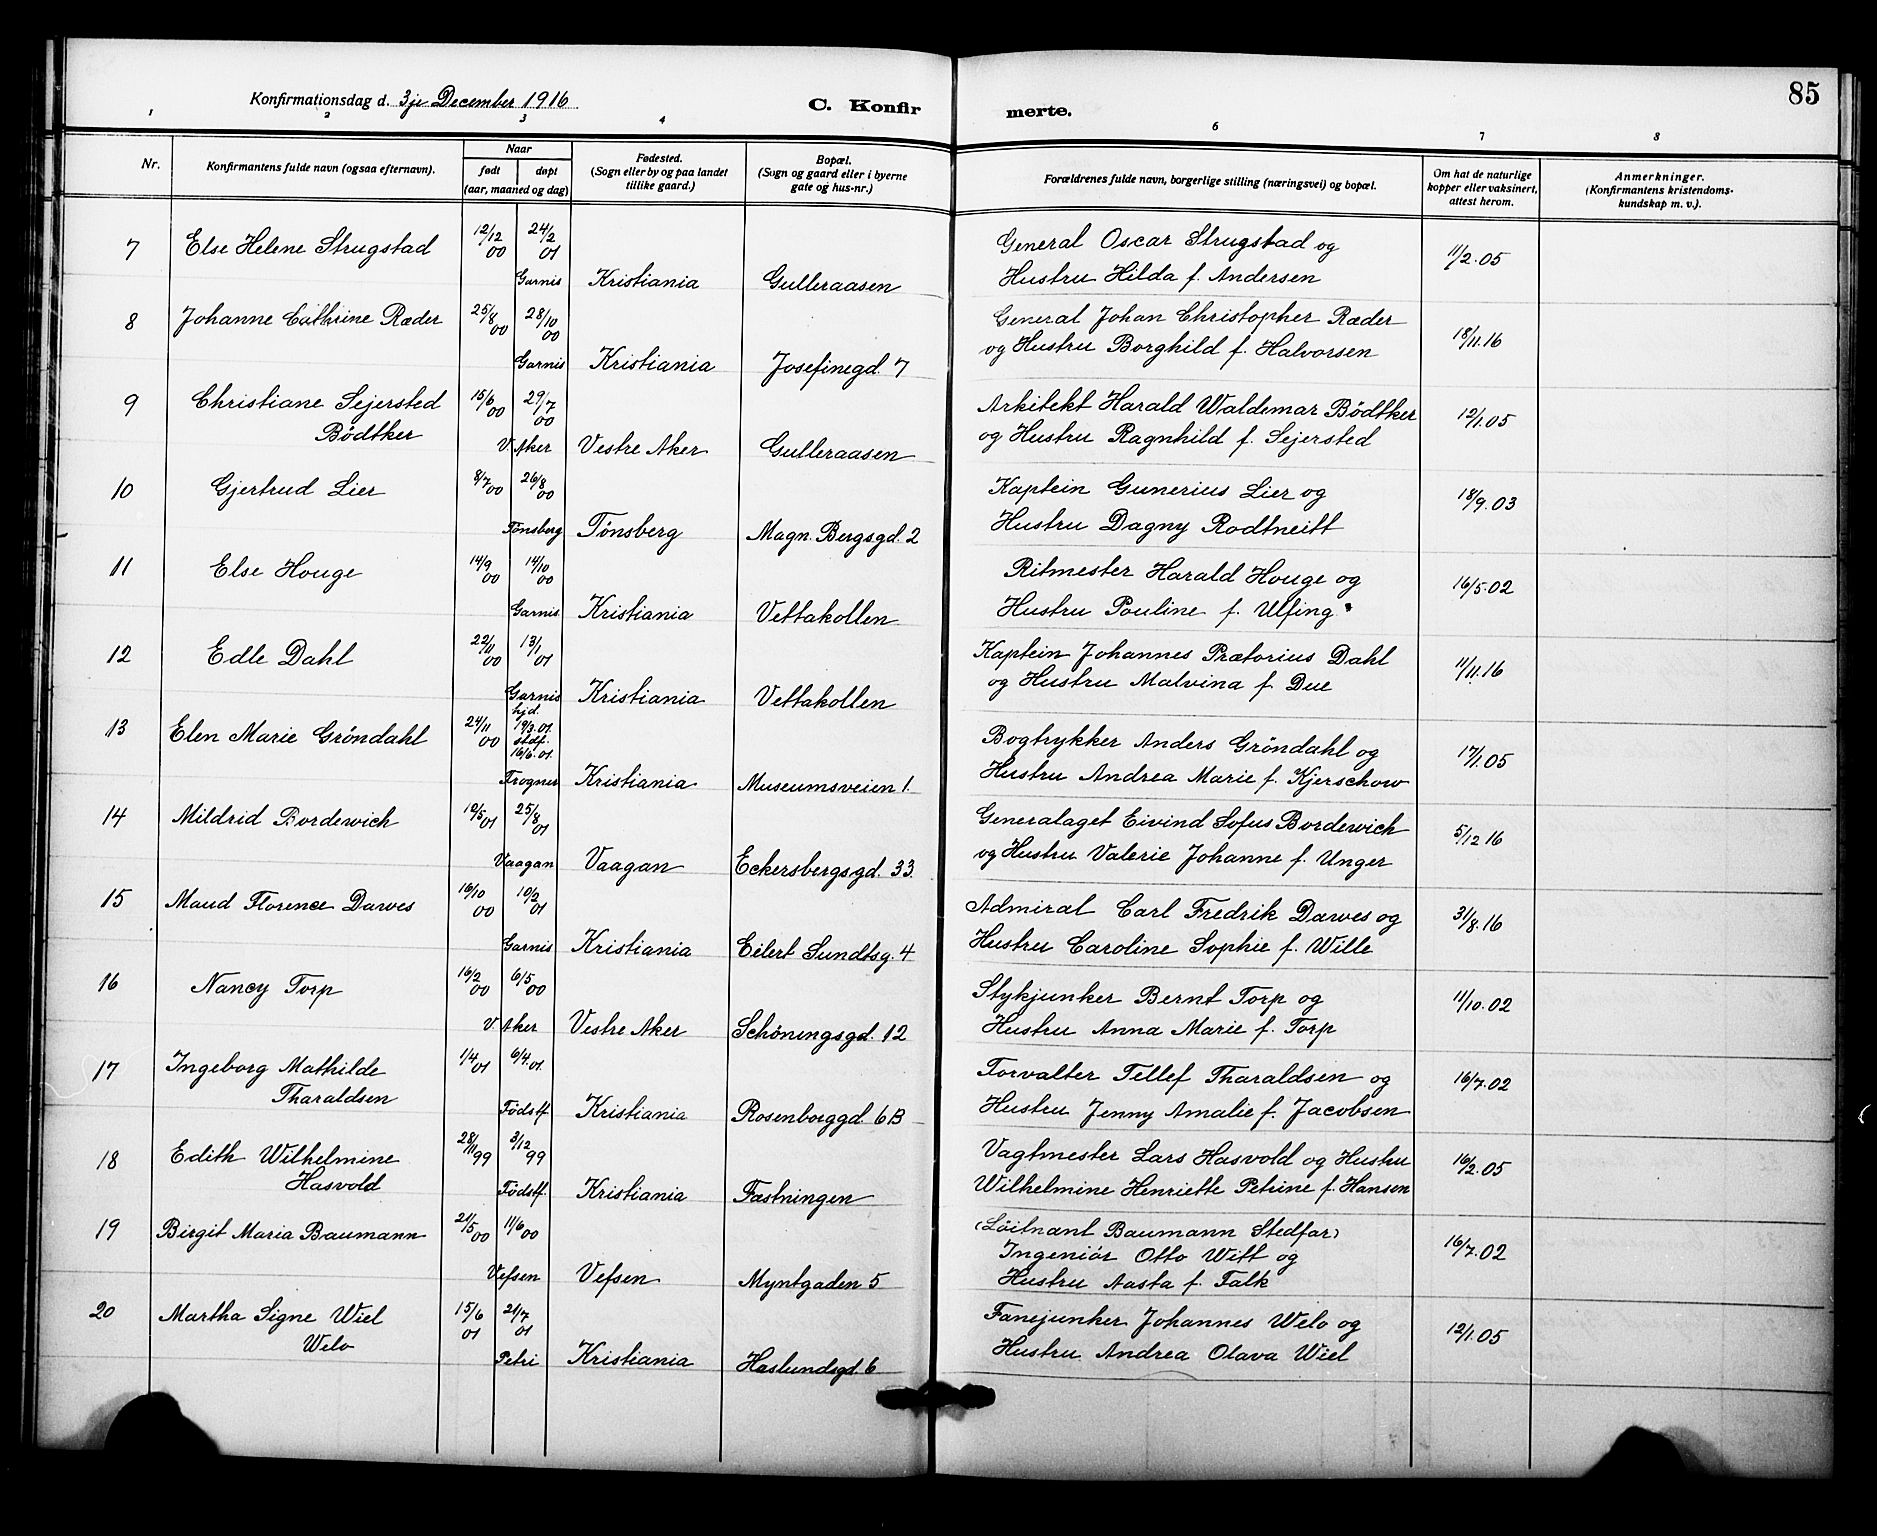 85
Konfirmationsdag d. 3je December 1916
C. Konfir
merte.
1 2 3 4 6 7 8
Nr.
Konfirmantens fulde navn (ogsaa efternavn).
Naar
født døpt
(aar, maaned og dag)
Fødested.
(Sogn eller by og paa landet
tillike gaard.)
Bopæl.
(Sogn og gaard eller i byerne
gate og hus-nr.)
Forældrenes fulde navn, borgerlige stilling (næringsvei) og bopæl.
Om hat de naturlige
kopper eller vaksinert,
attest herom.
Anmerkninger.
(Konfirmantens kristendoms-
kundskap m. v.).
7 Else Helene Strugstad 12/12 00 24/2 01 General Oscar Strugstad og 11/2.05
Garnis Kristiania Gulleraasen Hustru Hilda f. Andersen
8 Johanne Cathrine Ræder 25/8 00 28/10 00 General Johan Christopher Ræder 18/11.16
Garnis Kristiania Josefinegd. 7 og Hustru Borghild f. Halvorsen
9 Christiane Sejersted 15/6 00 29/7 00 Arkitekt Harald Waldemar Bödtker 12/1.05
Bödtker V. Aker Vestre Aker Gulleraasen og Hustru Ragnhild f. Sejersted
10 Gjertrud Lier 8/7 00 26/8 00 Kaptein Gunerius Lier og 18/9.03
Tønsberg Tønsberg Magn. Bergsgd. 2 Hustru Dagny Rodtneitt
11 Else Houge 14/9 00 14/10 00 Ritmester Harald Houge og 16/5.02
Garnis Kristiania Vettakollen Hustru Pouline f. Ulfing
12 Edle Dahl 22/11 00 13/1 01 Kaptein Johannes Prætorius Dahl 11/11.16
Garnis Kristiania Vettakollen og Hustru Malvina f. Due
13 Elen Marie Gröndahl 24/11 00 hjd. 19/3.01 stdf. 16/6.01 Bogtrykker Anders Gröndahl og 17/1.05
Frogner Kristiania Museumsveien 1. Hustru Andrea Marie f. Kjerschow
14 Mildrid Bordewich 19/5 01 25/8 01 Generalaget Eivind Sofus Bordewich 5/12 16
Vaagan Vaagan Eckersbergsgd. 33 og Hustru Valerie Johanne f. Unger
15 Maud Florence Dawes 16/10 00 10/2 01 Admiral Carl Fredrik Dawes og 31/8.16
Garnis Kristiania Eilert Sundtsg. 4 Hustru Caroline Sophie f. Wille
16 Nancy Torp 16/2 00 6/5 00 Stykjunker Bernt Torp og 11/10.02
V. Aker Vestre Aker Schöningsgd. 12 Hustru Anna Marie f. Torp
17 Ingeborg Mathilde 1/4 01 6/4.01 Forvalter Tellef Tharaldsen og 16/7.02
Tharaldsen Födstf. Kristiania Rosenborggd. 6B Hustru Jenny Amalie f. Jacobsen
18 Edith Wilhelmine 28/11 99 3/12 99 Vagtmester Lars Hasvold og Hustru 16/2.05
Hasvold Födstf. Kristiania Fæstningen Wilhelmine Henriette Petrine f. Hansen
19 Birgit Maria Baumann 21/5 00 11/6 00 (Löitnant Baumann Stedfar) 16/7.02
Ingeniör Otto Witt og
Vefsen Vefsen Myntgaden 5 Hustru Aasta f. Falk
20 Martha Signe Wiel 15/6 01 21/7 01 Fanejunker Johannes Welo og 12/1.05
Welo Petri Kristiania Haslundsgd. 6 Hustru Andrea Olava Wiel